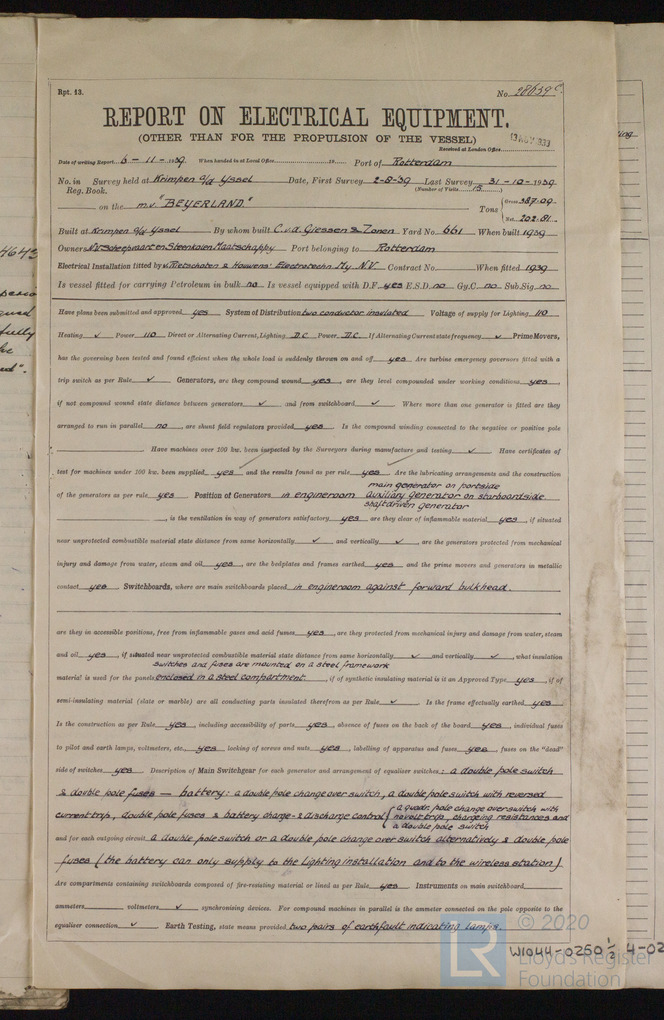 Rpt. 13.
No. 28639c
REPORT ON ELECTRICAL EQUIPMENT.
(OTHER THAN FOR THE PROPULSION OF THE VESSEL)
Received at London Office
Date of writing Report 6 - 11 - 1939. When handed in at Local Office 19 Port of Rotterdam
No. in Survey held at Krimpen a/d Yssel Date, First Survey 2-8-39 Last Survey 31-10-1939
Reg. Book. (Number of Visits 15.)
on the m.v. "BEYERLAND." Tons {Gross 387.09. Net 202.81.
Built at Krimpen a/d Yssel By whom built C.v.d. Giessen & Zonen Yard No. 661 When built 1939
Owners N.V. Scheepvaart en Steenkolen Maatschappy Port belonging to Rotterdam
Electrical Installation fitted by v. Rietschoten & Houwens' Electrotechn. My N.V. Contract No. When fitted 1939
Is vessel fitted for carrying Petroleum in bulk no Is vessel equipped with D.F. yes E.S.D. no Gy.C. no Sub.Sig. no
Have plans been submitted and approved yes System of Distribution two conductor insulated Voltage of supply for Lighting 110
Heating ✓ Power 110 Direct or Alternating Current, Lighting D.C. Power D.C. If Alternating Current state frequency ✓ Prime Movers,
has the governing been tested and found efficient when the whole load is suddenly thrown on and off yes Are turbine emergency governors fitted with a
trip switch as per Rule ✓ Generators, are they compound wound yes, are they level compounded under working conditions yes,
if not compound wound state distance between generators ✓ and from switchboard ✓ Where more than one generator is fitted are they
arranged to run in parallel no, are shunt field regulators provided yes Is the compound winding connected to the negative or positive pole
Have machines over 100 kw. been inspected by the Surveyors during manufacture and testing ✓ Have certificates of
test for machines under 100 kw. been supplied yes and the results found as per rule yes Are the lubricating arrangements and the construction
main generator on portside
of the generators as per rule yes Position of Generators in engineroom auxiliary generator on starboardside
shaftdriven generator
, is the ventilation in way of generators satisfactory yes are they clear of inflammable material yes, if situated
near unprotected combustible material state distance from same horizontally ✓ and vertically ✓, are the generators protected from mechanical
injury and damage from water, steam and oil yes, are the bedplates and frames earthed yes and the prime movers and generators in metallic
contact yes Switchboards, where are main switchboards placed in engineroom against forward bulkhead.
are they in accessible positions, free from inflammable gases and acid fumes yes, are they protected from mechanical injury and damage from water, steam
and oil yes, if situated near unprotected combustible material state distance from same horizontally ✓ and vertically ✓, what insulation
switches and fuses are mounted on a steel framework
material is used for the panels enclosed in a steel compartment, if of synthetic insulating material is it an Approved Type yes, if of
semi-insulating material (slate or marble) are all conducting parts insulated therefrom as per Rule ✓ Is the frame effectually earthed yes
Is the construction as per Rule yes, including accessibility of parts yes, absence of fuses on the back of the board yes, individual fuses
to pilot and earth lamps, voltmeters, etc. yes locking of screws and nuts yes, labelling of apparatus and fuses yes, fuses on the "dead"
side of switches yes Description of Main Switchgear for each generator and arrangement of equaliser switches: a double pole switch
& double pole fuses — battery: a double pole change over switch, a double pole switch with reversed
current trip, double pole fuses & battery charge- & discharge control {a quadr. pole change over switch with
novolt trip, charging resistances and
a double pole switch
and for each outgoing circuit a double pole switch or a double pole change over switch alternatively & double pole
fuses (the battery can only supply to the Lighting installation and to the wireless station)
Are compartments containing switchboards composed of fire-resisting material or lined as per Rule yes Instruments on main switchboard
ammeters voltmeters ✓ synchronising devices. For compound machines in parallel is the ammeter connected on the pole opposite to the
equaliser connection ✓ Earth Testing, state means provided two pairs of earthfault indicating lamps.
© 2020
LR Lloyd's Register
Foundation
W1044-0250 1/2